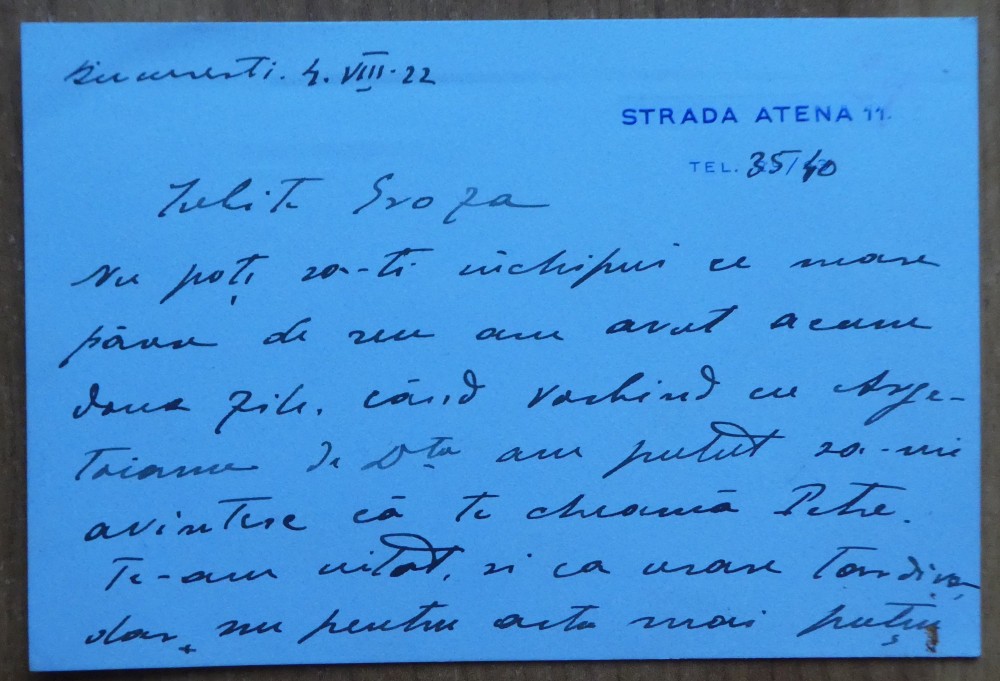 Bucuresti. 4. VIII. 22
STRADA ATENA 11.
TEL. 35/40
Iubite Groza
Nu poți sa-ti închipui ce mare
părere de reu am avut acum
doua zile, când vorbind cu Arge-
toianu de Dta am putut sa-mi
amintesc că te cheamă Petre.
Te-am uitat, si ca urare tardiva,
dar, nu pentru asta mai puțin